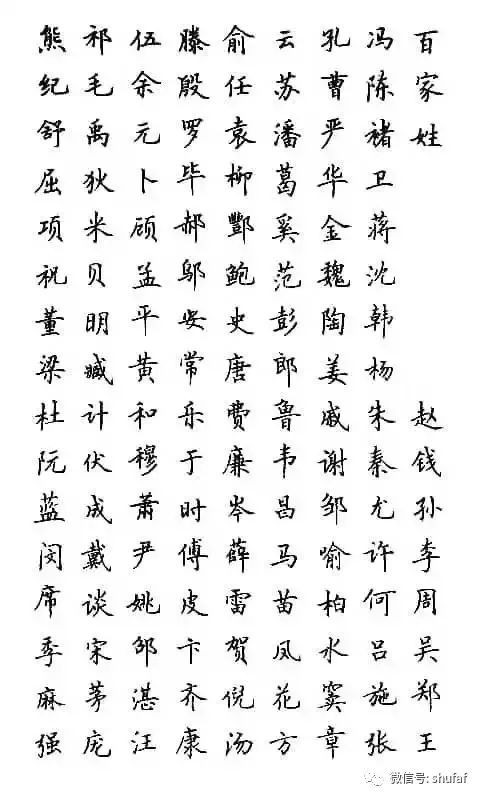 百家姓 赵钱孙李周吴郑王
冯陈褚卫蒋沈韩杨朱秦尤许何吕施张
孔曹严华金魏陶姜戚谢邹喻柏水窦章
云苏潘葛奚范彭郎鲁韦昌马苗凤花方
俞任袁柳酆鲍史唐费廉岑薛雷贺倪汤
滕殷罗毕郝邬安常乐于时傅皮卞齐康
伍余元卜顾孟平黄和穆萧尹姚邵湛汪
祁毛禹狄米贝明臧计伏成戴谈宋茅庞
熊纪舒屈项祝董梁杜阮蓝闵席季麻强
微信号: shufaf